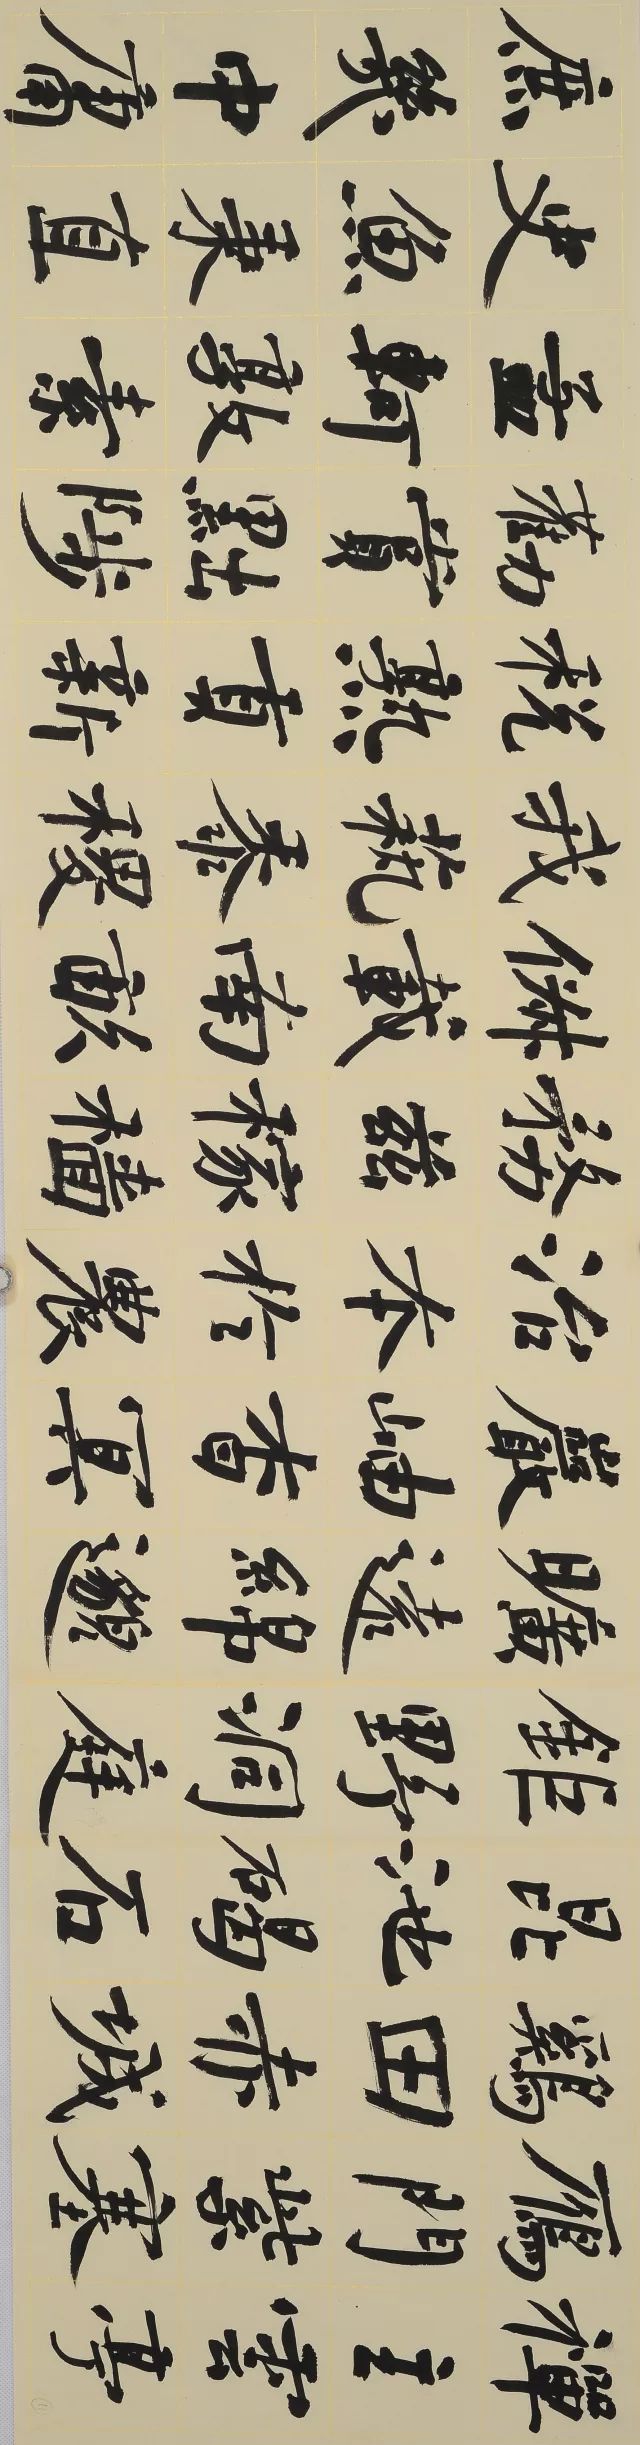 禪主雲亭
雁門紫塞
鷄田赤城
昆池碣石
鉅野洞庭
曠遠綿邈
巖岫杳冥
治本於農
務茲稼穡
俶載南畝
我蓺黍稷
税熟貢新
勸賞黜陟
孟軻敦素
史魚秉直
庶幾中庸